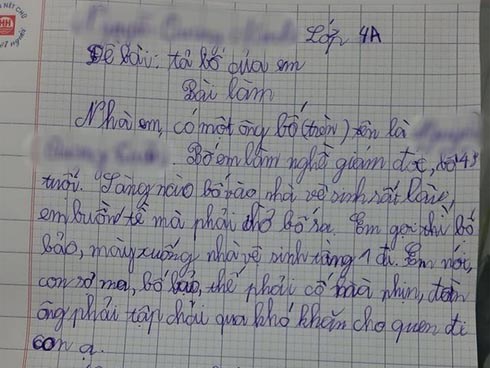 Lớp 4A
Đề bài: tả bố của em
Bài làm
Nhà em, có một ông bố (tròn) tên là
Bố em làm nghề giám đốc, bố 43
tuổi. Sáng nào bố vào nhà vệ sinh rất lâu,
em buồn tè mà phải chờ bố ra. Em gọi thì bố
bảo, mày xuống nhà vệ sinh tầng 1 đi. Em nói,
con sợ ma, bố bảo, thế phải cố mà nhịn, đàn
ông phải tập chải qua khó khăn cho quen đi
con ạ.